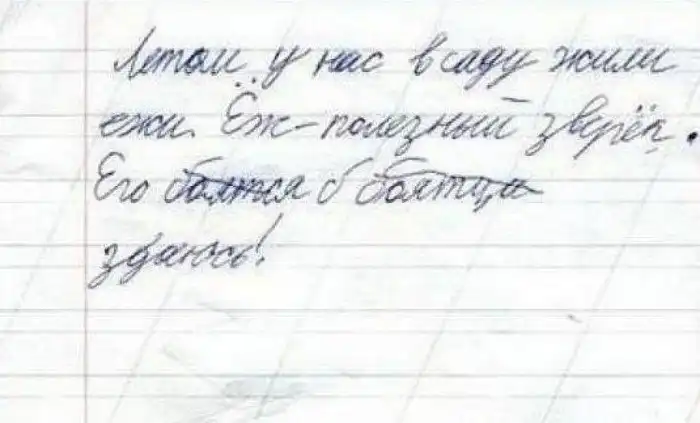 Летом у нас в саду жили
ежи. Ёж - полезный зверёк.
Его боятся б боятци
здаюсь!